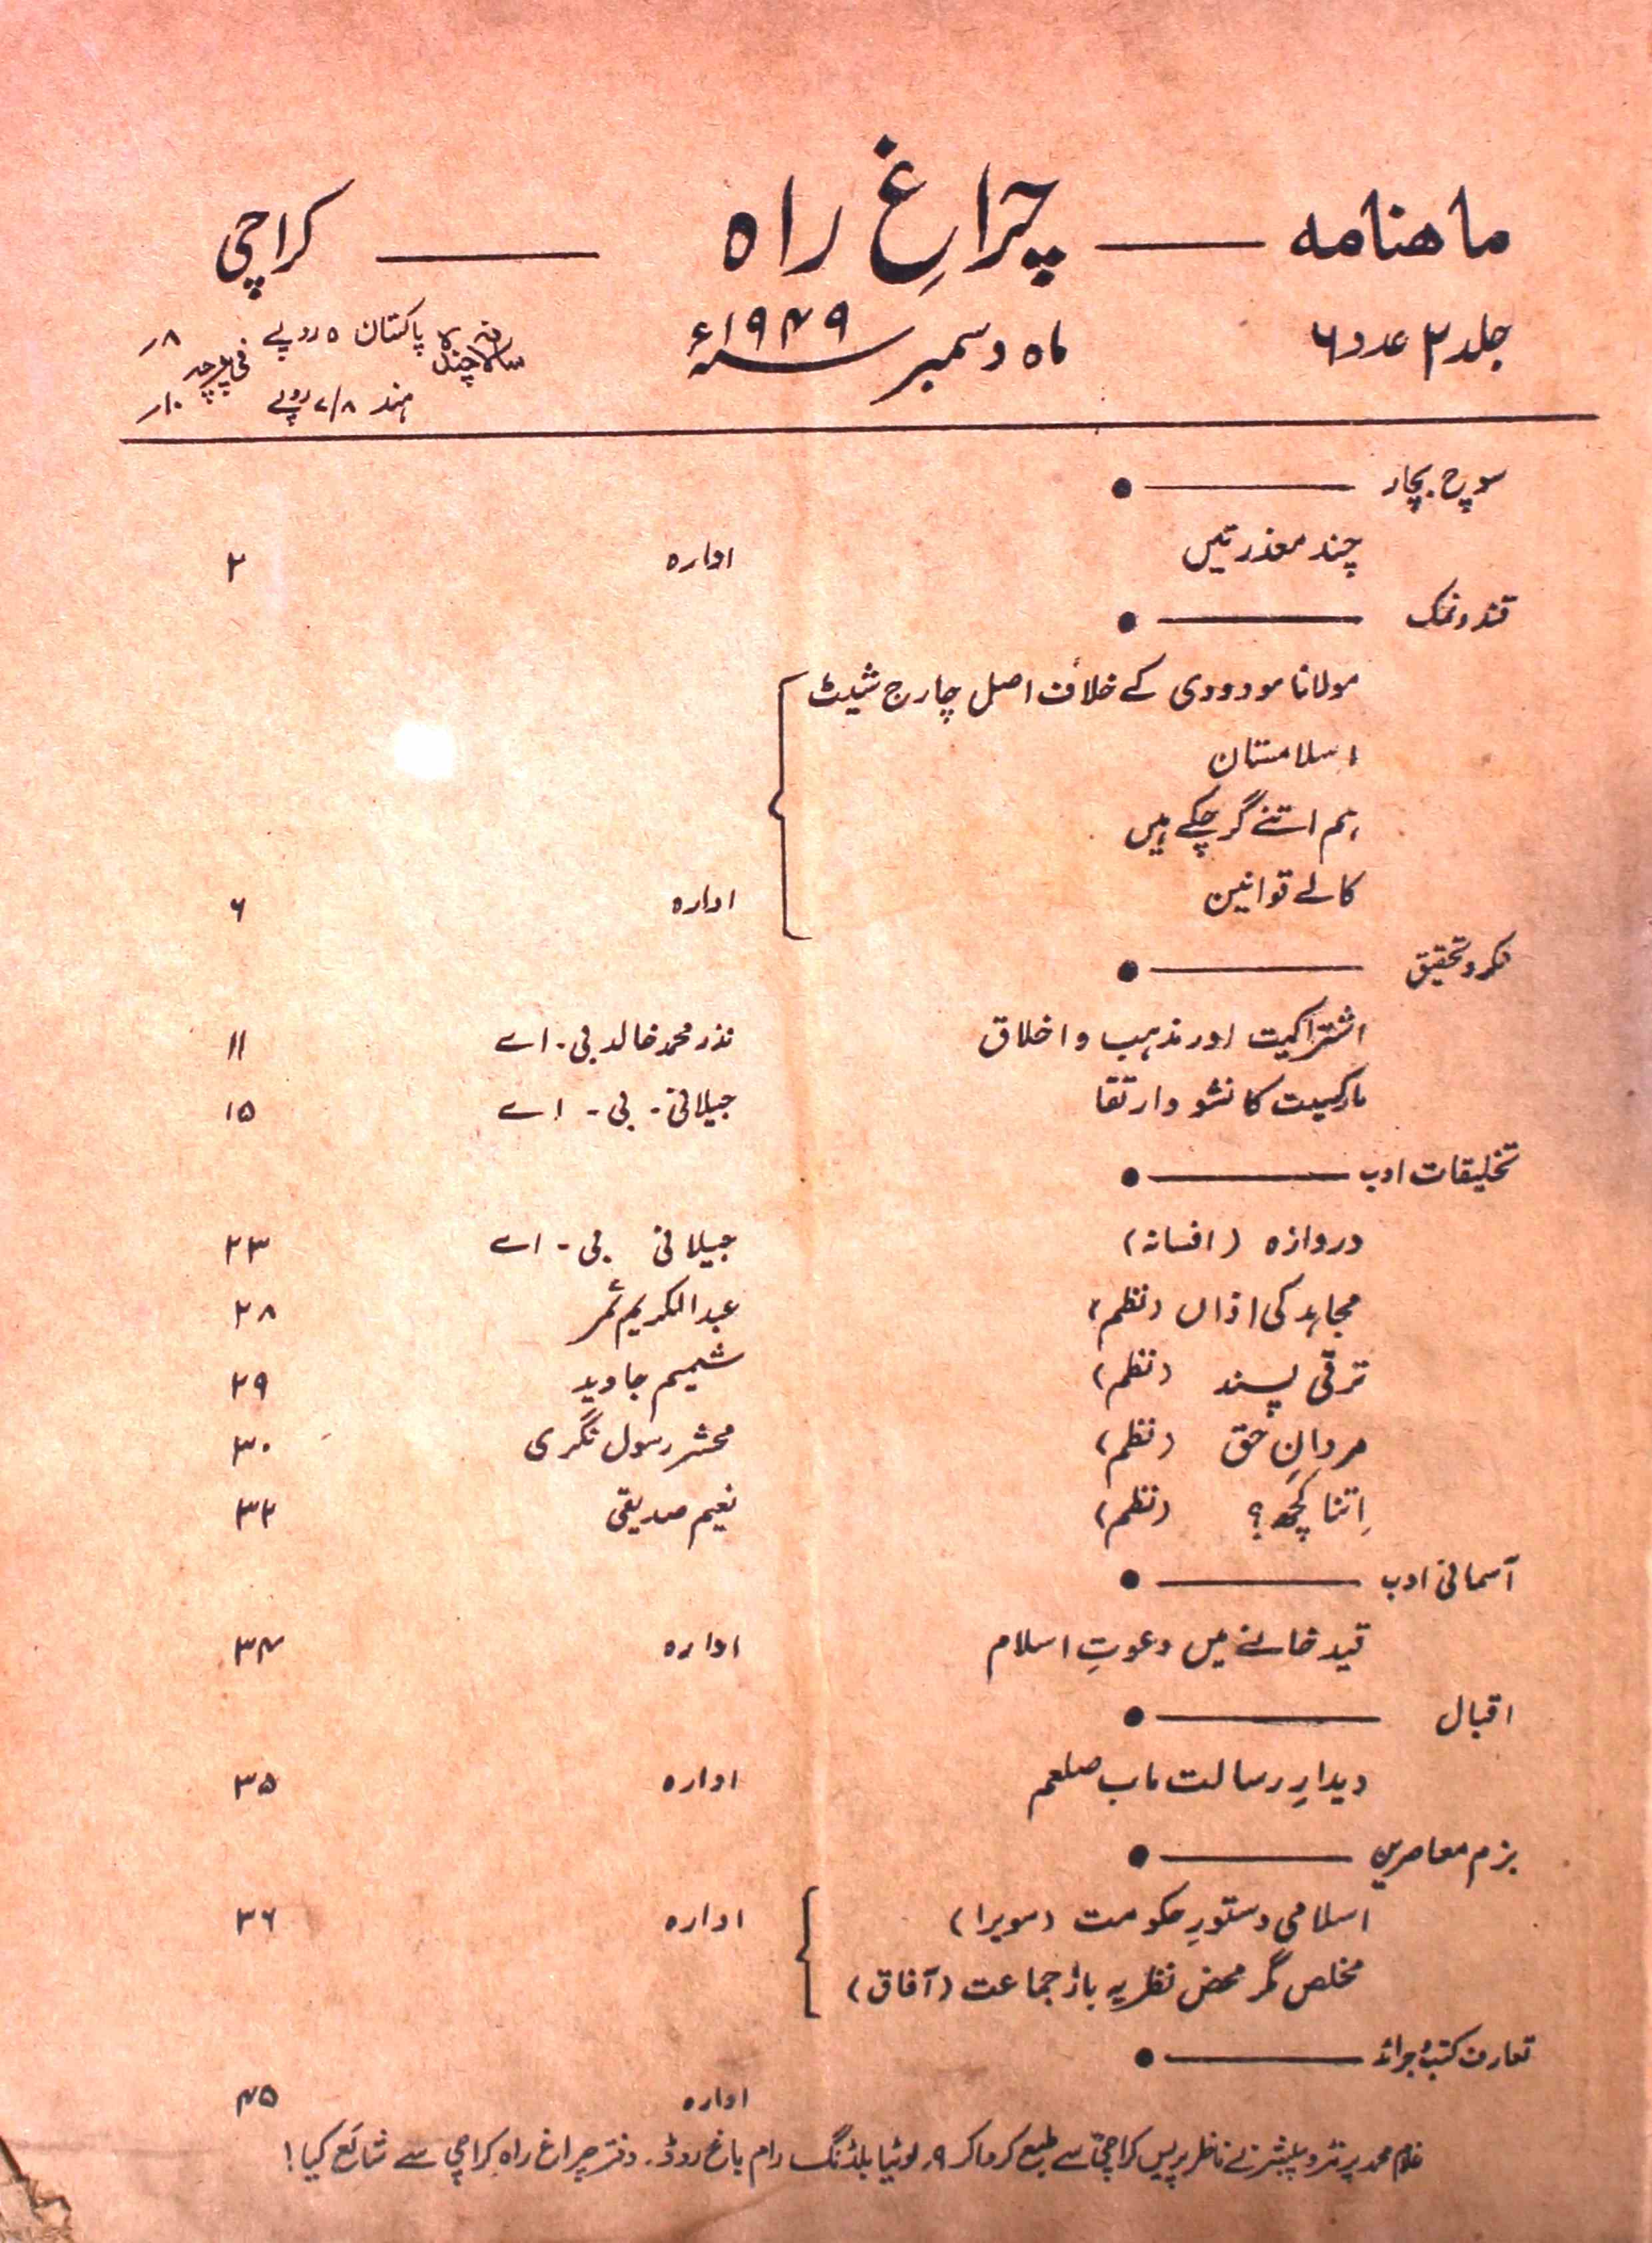 ماهنامه — چراغِ راہ — کراچی
جلد ۲ عدد ۶ ماہ دسمبر ۱۹۴۹ء سالانہ چندہ پاکستان ۵ روپے فی پرچہ ۸؍
ہند ۷/۸ روپے ۱۰؍
سوچ بچار
چند معذرتیں ادارہ ۲
قند و نمک
مولانا مودودی کے خلاف اصل چارج شیٹ
اسلامستان
ہم اتنے گر چکے ہیں
کالے قوانین ادارہ ۶
فکر و تحقیق
اشتراکیت اور مذہب و اخلاق نذر محمد خالد بی۔ اے ۱۱
مارکسیت کا نشو و ارتقا جیلانی۔ بی۔ اے ۱۵
تخلیقات ادب
دروازہ (افسانہ) جیلانی بی۔ اے ۲۳
مجاہد کی اذاں (نظم) عبدالکریم ثمر ۲۸
ترقی پسند (نظم) شمیم جاوید ۲۹
مردانِ حق (نظم) محشر رسول نگری ۳۰
اِتنا کچھ؟ (نظم) نعیم صدیقی ۳۲
آسمانی ادب
قید خانے میں دعوتِ اسلام ادارہ ۳۴
اقبال
دیدارِ رسالت ماب صلعم ادارہ ۳۵
بزم معاصرین
اسلامی دستورِ حکومت (سویرا) ادارہ ۳۶
مخلص مگر محض نظریہ باز جماعت (آفاق)
تعارف کتب و جرائد
ادارہ ۴۵
غلام محمد پرنٹر و پبلشر نے ناظر پریس کراچی سے طبع کروا کر ۹۔ لوٹیا بلڈنگ رام باغ روڈ۔ دفتر چراغ راہ کراچی سے شائع کیا!